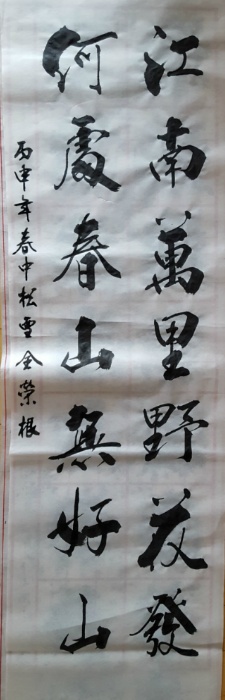 江南萬里野花發
何處春山無好山
丙申年春中松雪金榮根